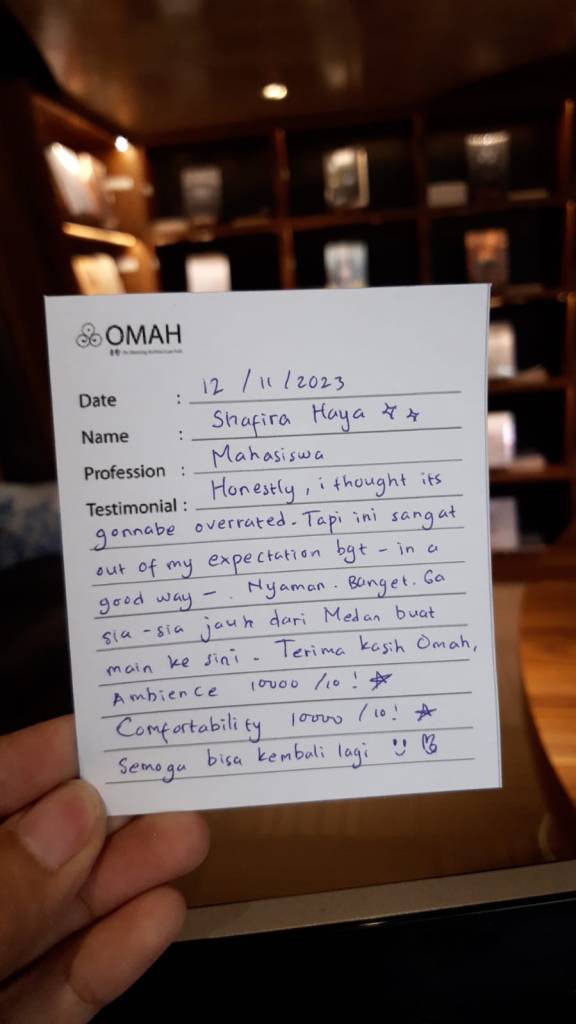 OMAH
Date : 12 / 11 / 2023
Name : Shafira Haya
Profession : Mahasiswa
Testimonial : Honestly, i thought its
gonnabe overrated. Tapi ini sangat
out of my expectation bgt - in a
good way - . Nyaman. Banget. Ga
sia-sia jauh dari Medan buat
main ke sini. Terima kasih Omah,
Ambience 10000 /10 !
Comfortability 10000 /10!
Semoga bisa kembali lagi